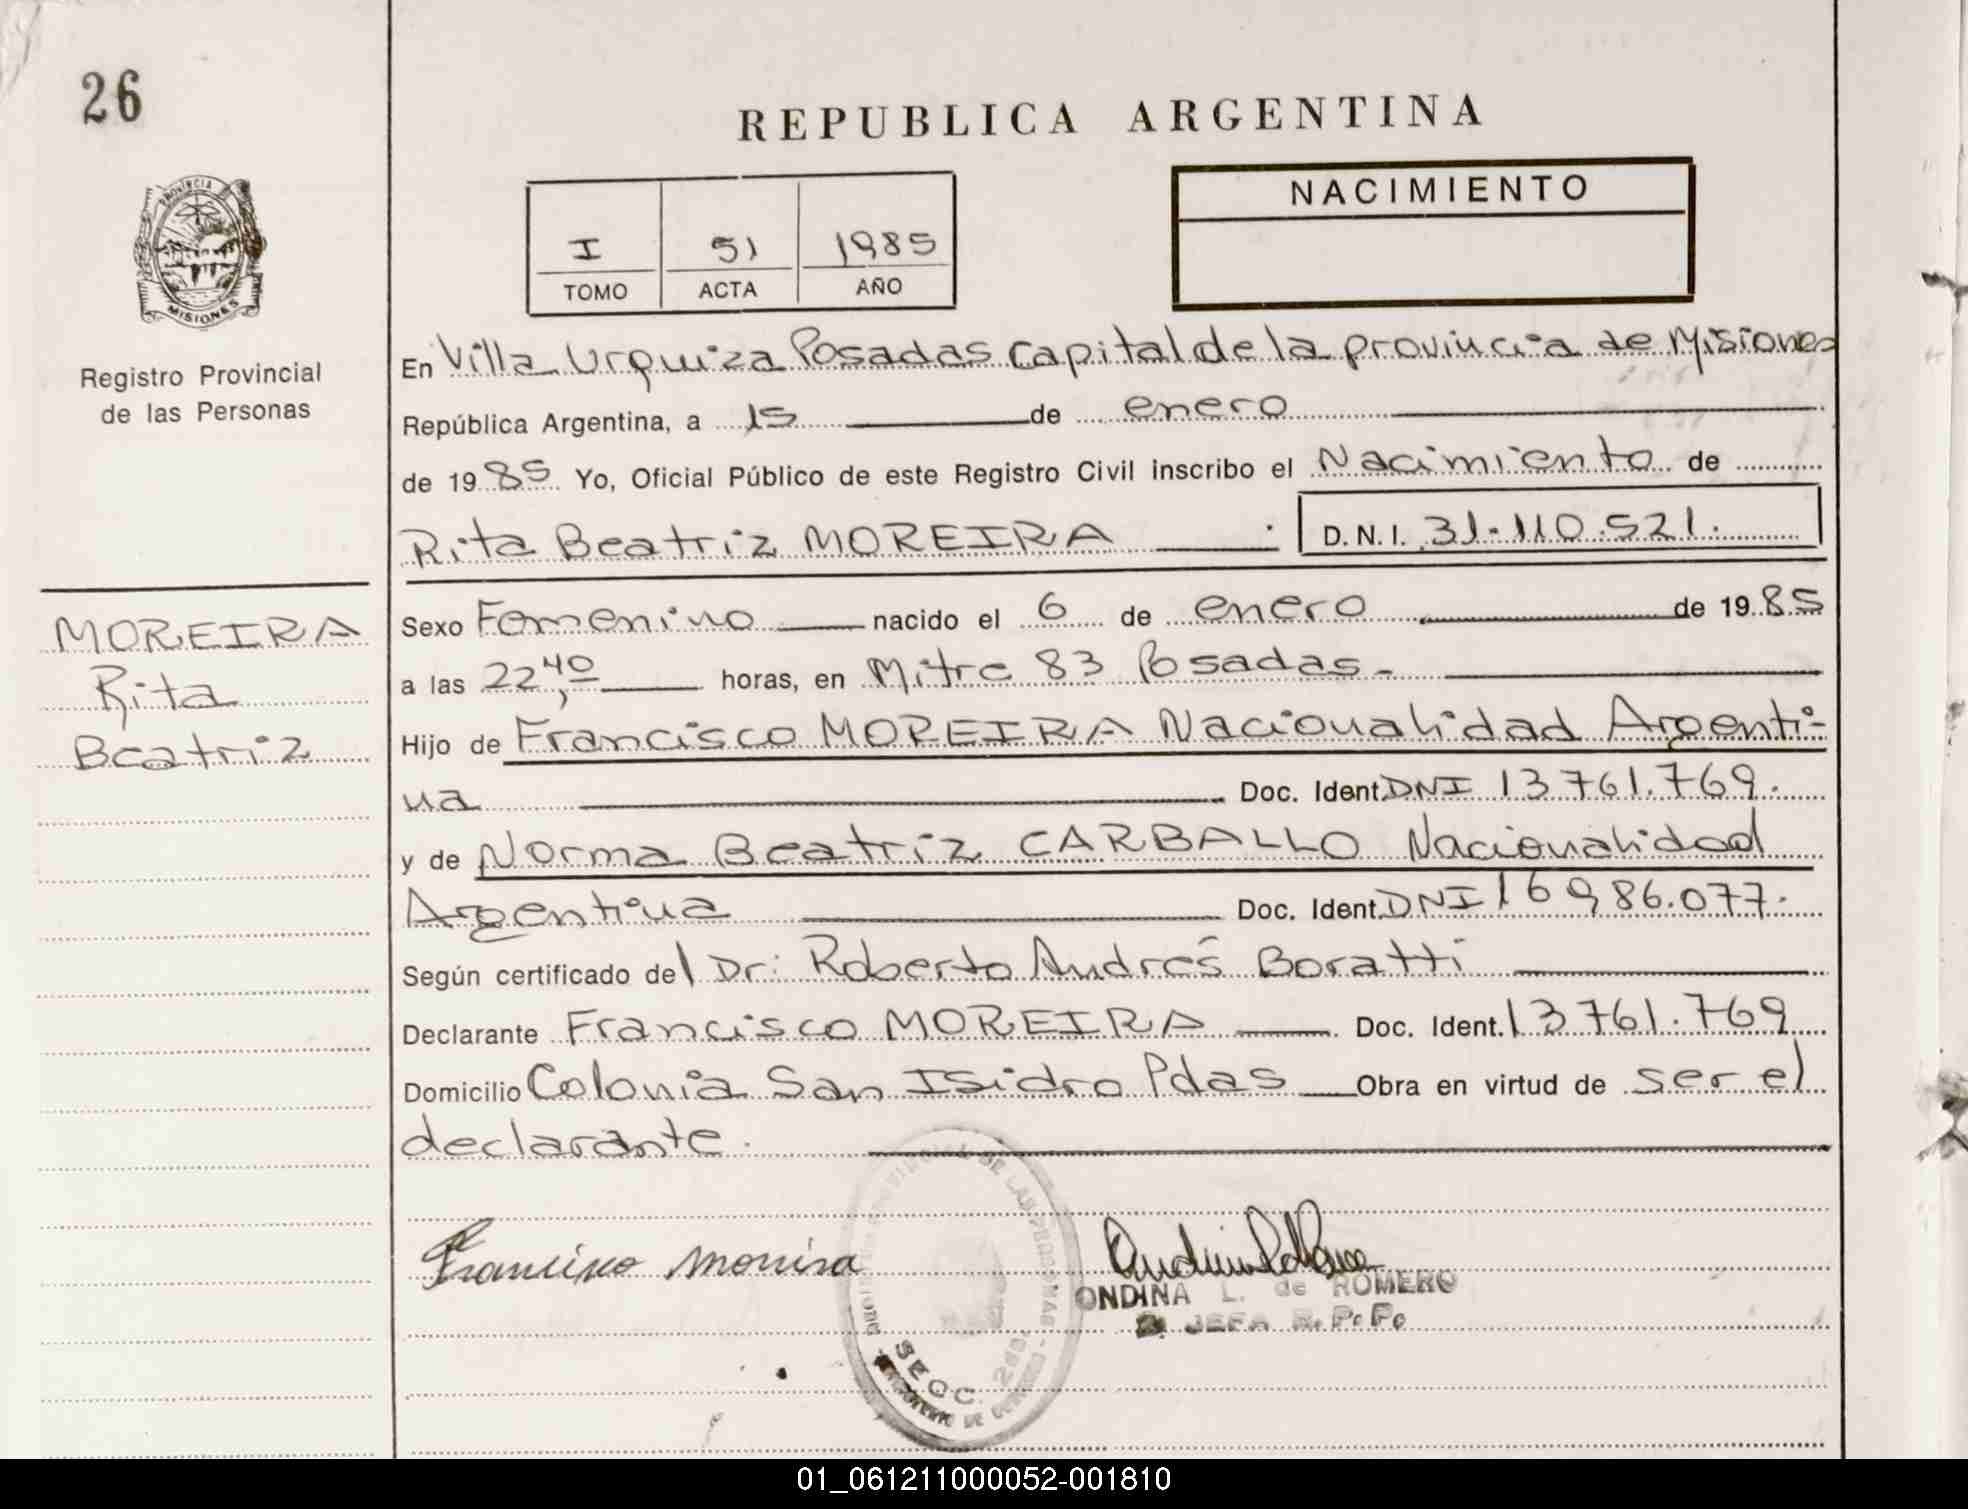 26
REPUBLICA ARGENTINA
PROVINCIA
MISIONES
Registro Provincial
de las Personas
I 51 1985
TOMO ACTA AÑO
NACIMIENTO
En Villa Urquiza Posadas Capital de la provincia de Misiones
República Argentina, a 15 de enero
de 1985 Yo, Oficial Público de este Registro Civil inscribo el Nacimiento de
Rita Beatriz MOREIRA . D.N.I. 31.110.521.
MOREIRA
Rita
Beatriz
Sexo Femenino nacido el 6 de enero de 1985
a las 22,40 horas, en Mitre 83 Posadas.-
Hijo de Francisco MOREIRA Nacionalidad Argenti-
na Doc. Ident. DNI 13.761.769.
y de Norma Beatriz CARBALLO Nacionalidad
Argentina Doc. Ident. DNI 16.986.077.
Según certificado del Dr: Roberto Andrés Boratti
Declarante Francisco MOREIRA Doc. Ident. 13.761.769
Domicilio Colonia San Isidro Pdas Obra en virtud de ser el
declarante.
Francisco Moreira
ONDINA L. de ROMERO
JEFA R.P.P.
DE LAS PERSONAS
SECC.
01_061211000052-001810